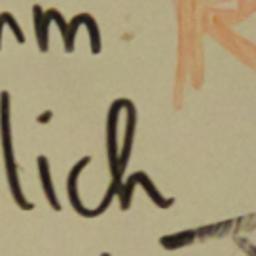 nm
lich